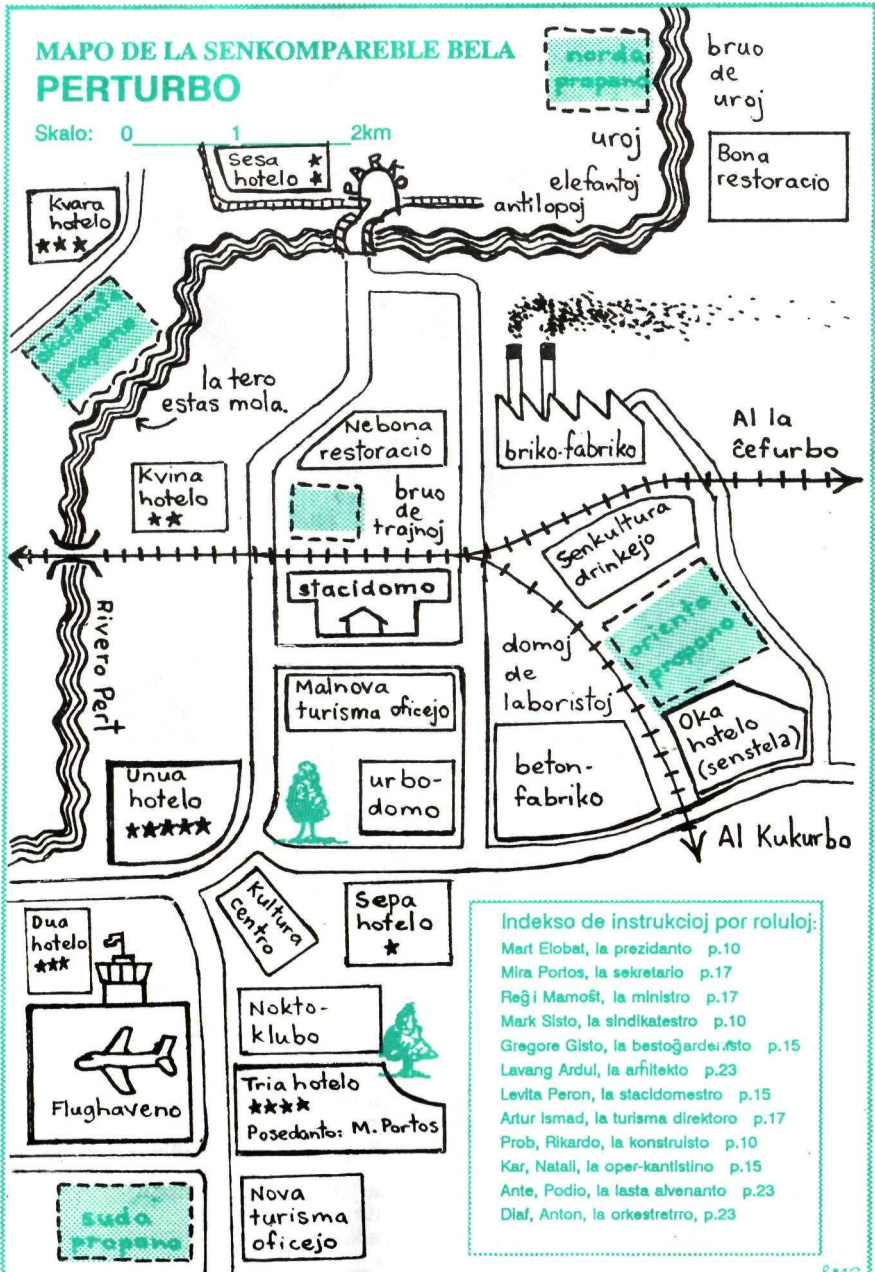 MAPO DE LA SENKOMPAREBLE BELA
PERTURBO
Skalo: 0 1 2km
norda
propono
bruo
de
uroj
uroj
elefantoj
antilopoj
Bona
restoracio
Sesa ★
hotelo ★
PARKO
Kvara
hotelo
★★★
okcidenta
propono
la tero
estas mola.
Nebona
restoracio
briko-fabriko
Al la
ĉefurbo
Kvina
hotelo
★★
bruo
de
trajnoj
Senkultura
drinkejo
stacidomo
orienta
propono
Rivero Pert
domoj
de
laboristoj
Malnova
turisma oficejo
Oka
hotelo
(senstela)
Unua
hotelo
★★★★★
urbo-
domo
beton-
fabriko
Al Kukurbo
Dua
hotelo
★★★
Kultura
centro
Sepa
hotelo
★
Flughaveno
Nokto-
klubo
Tria hotelo
★★★★
Posedanto: M. Portos
suda
propono
Nova
turisma
oficejo
Indekso de instrukcioj por roluloj:
Mart Elobat, la prezidanto p.10
Mira Portos, la sekretario p.17
Reĝi Mamoŝt, la ministro p.17
Mark Sisto, la sindikatestro p.10
Gregore Gisto, la bestoĝardenisto p.15
Lavang Ardul, la arĥitekto p.23
Levita Peron, la stacidomestro p.15
Artur Ismad, la turisma direktoro p.17
Prob, Rikardo, la konstruisto p.10
Kar, Natali, la oper-kantistino p.15
Ante, Podio, la lasta alvenanto p.23
Diaf, Anton, la orkestretrro, p.23